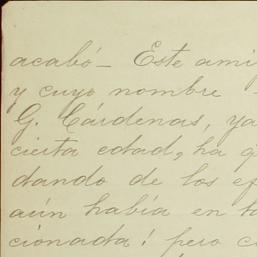 acabó— Este ami
y cuyo nombre
G. Cárdenas, ya
cierta edad, ha q
dando de los ef
aún había en t
cionada! pero c